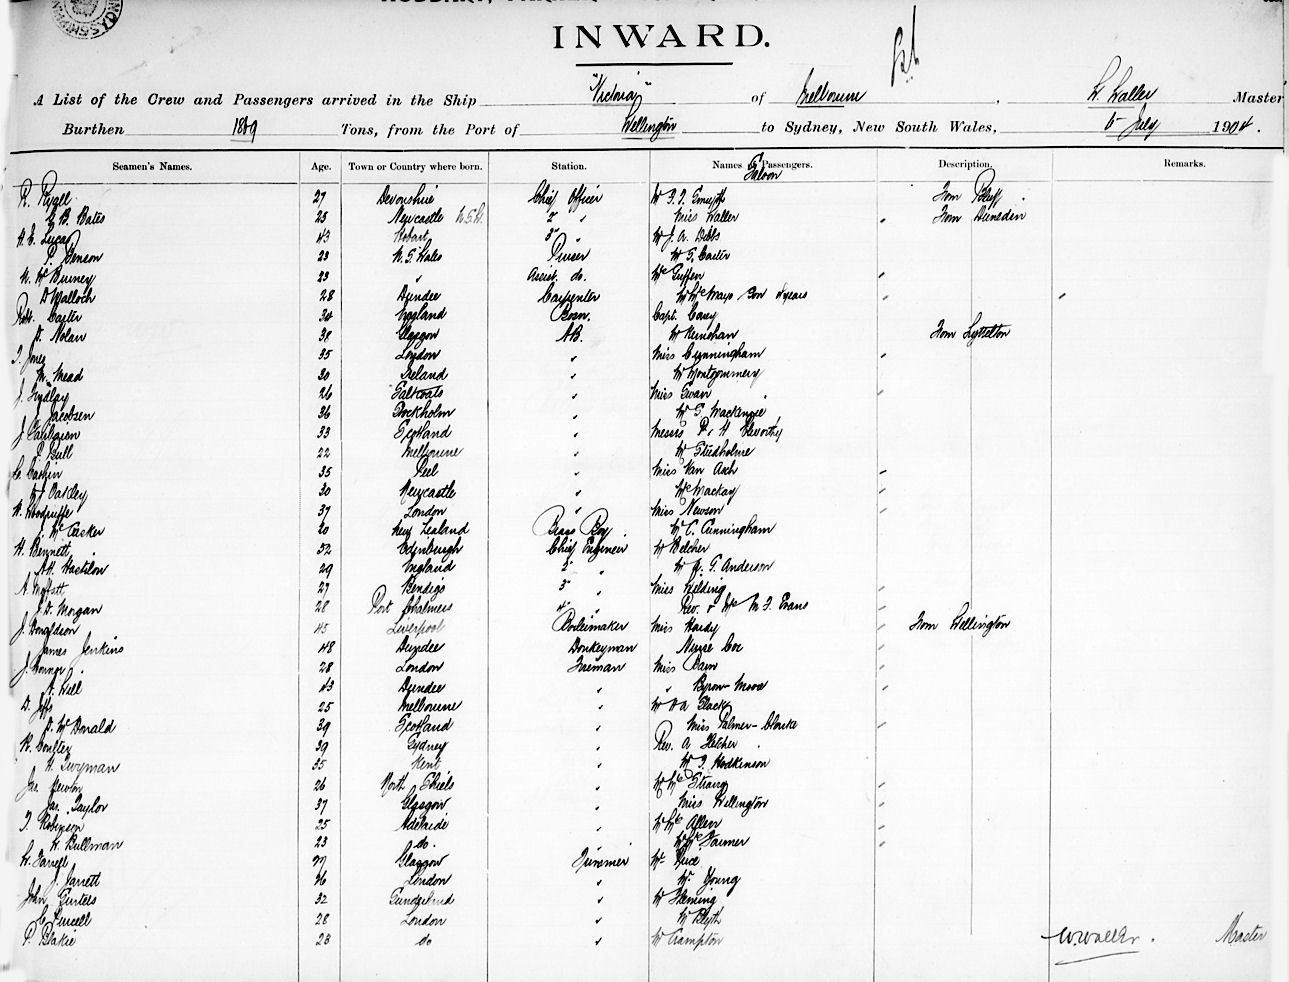 INWARD.
A List of the Crew and Passengers arrived in the Ship "Victoria" of Melbourne, W. Waller Master
Burthen 1869 Tons, from the Port of Wellington to Sydney, New South Wales, 5 July 1904.
Seamen's Names. Age. Town or Country where born. Station. Names of Passengers. Description. Remarks.
Saloon
27 Devonshire Chief Officer Mr Smyth From Bluff
Bates 25 Newcastle N.S.W. 2 " Miss Waller " From Dunedin
Lucas 43 Hobart 3 " Mr J. A. Dibbs
P. Benson 23 N. S. Wales Purser Mr S. Carter
Mc Burney 23 " Assist. do. "
D Walloch 28 Dundee Carpenter Son 4 years " "
Robt. Carter 34 England Bosn. Capt. Cary
Nolan 38 Glasgow AB. From Lyttelton
Jones 35 London " Miss Cunningham "
M. Mead 30 Ireland " Mr Montgommery
J. Lindsay 26 Saltcoats " Miss Ewan "
Jacobsen 36 Stockholm " Mr Mackenzie
33 Scotland " Messrs P. & H Elworthy
P. Bull 22 Melbourne " Mr Studholme
35 Peel " Miss Van Asch "
Oakley 30 Newcastle " Mackay "
Woodruffe 37 London " Miss Newson "
20 New Zealand Brass Boy Mr C. Cunningham
H. Bennett 52 Edinburgh Chief Engineer Mr Belcher
29 England 2 " Mr Anderson
A. Moffatt 27 Bendigo 3 " Miss Wilding "
Morgan 28 Port Chalmers 4 " Rev. & Mrs Evans "
J. Donaldson 45 Liverpool Boilermaker Miss Hardy " From Wellington
James Jenkins 48 Dundee Donkeyman Nurse Coe "
J. 28 London Fireman Miss "
43 Dundee " " Byron-Moore "
25 Melbourne " Mr Black
Mc Donald 39 Scotland " Miss Palmer-Clarke "
39 Sydney " Rev. A Fletcher
H. Twyman 35 Kent " Mr Hodkinson
Jas. Newton 26 North Shiels " Mr Mrs Strang "
Jas. Taylor 37 Glasgow " Miss Wellington "
Robinson 25 Adelaide " Mr Mrs Allen "
Bullman 23 do. " Mr Mrs Farmer "
Farrell 27 Glasgow Trimmer Mr
Jarrett 26 London " Mr Young
John 32 Sunderland " Mr Fleming
C. Purcell 28 London " Mr Blyth
P. Blakie 23 do " Mr Crampton W. Waller. Master